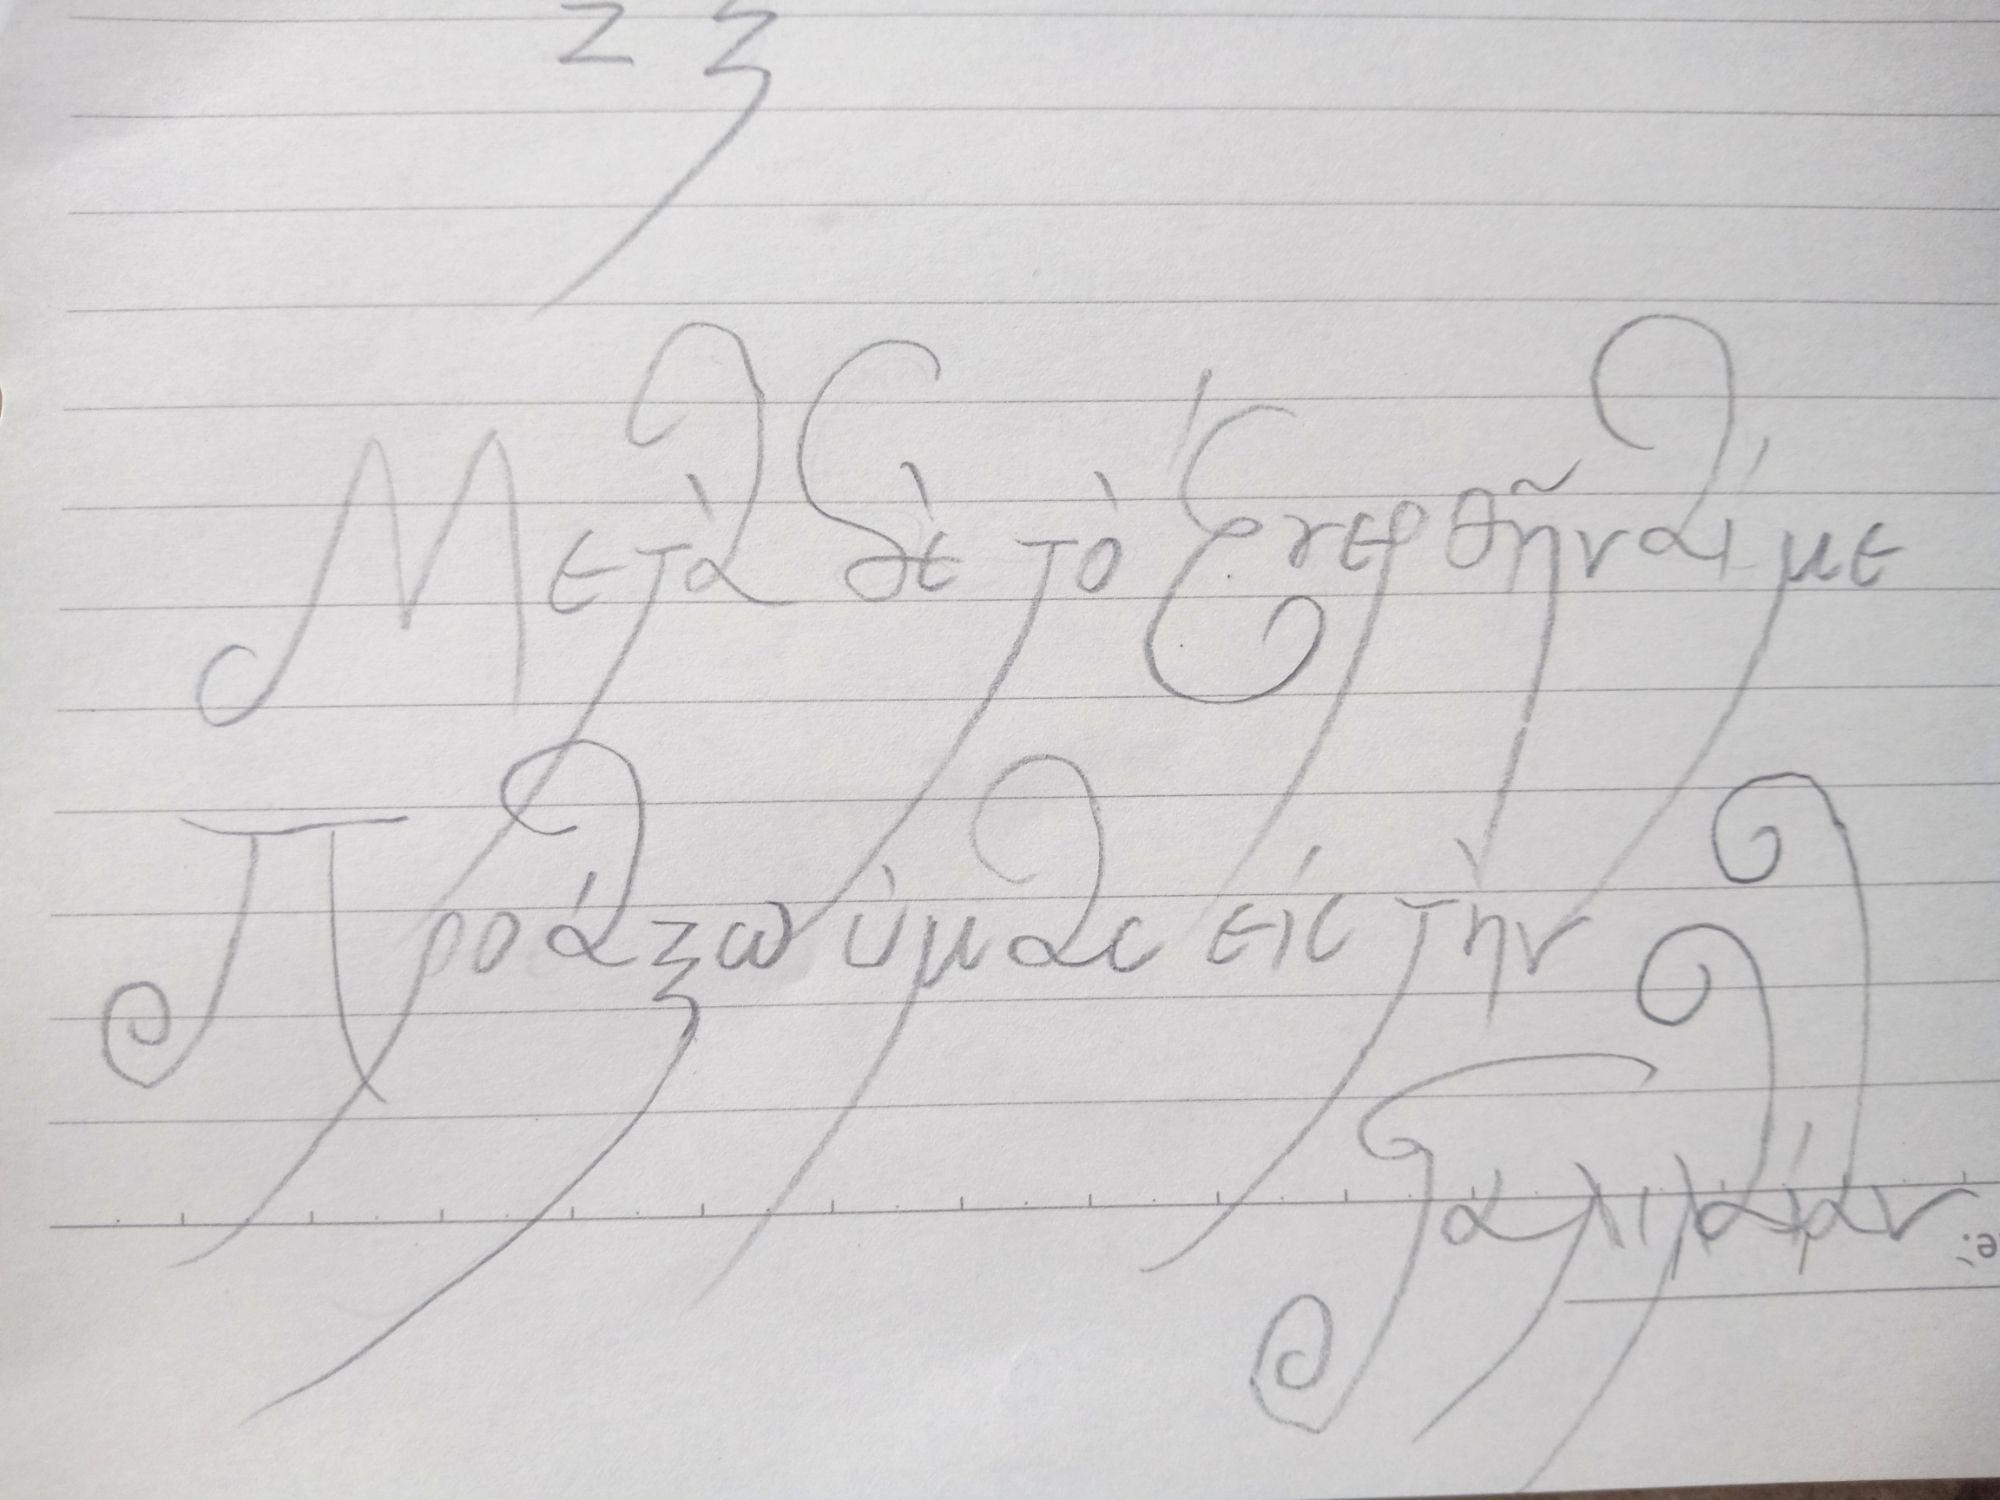 Ζ ξ
Μετὰ δὲ τὸ ἐγερθῆναί με
Προάξω ὑμας εἰς τὴν
Γαλιλαίαν